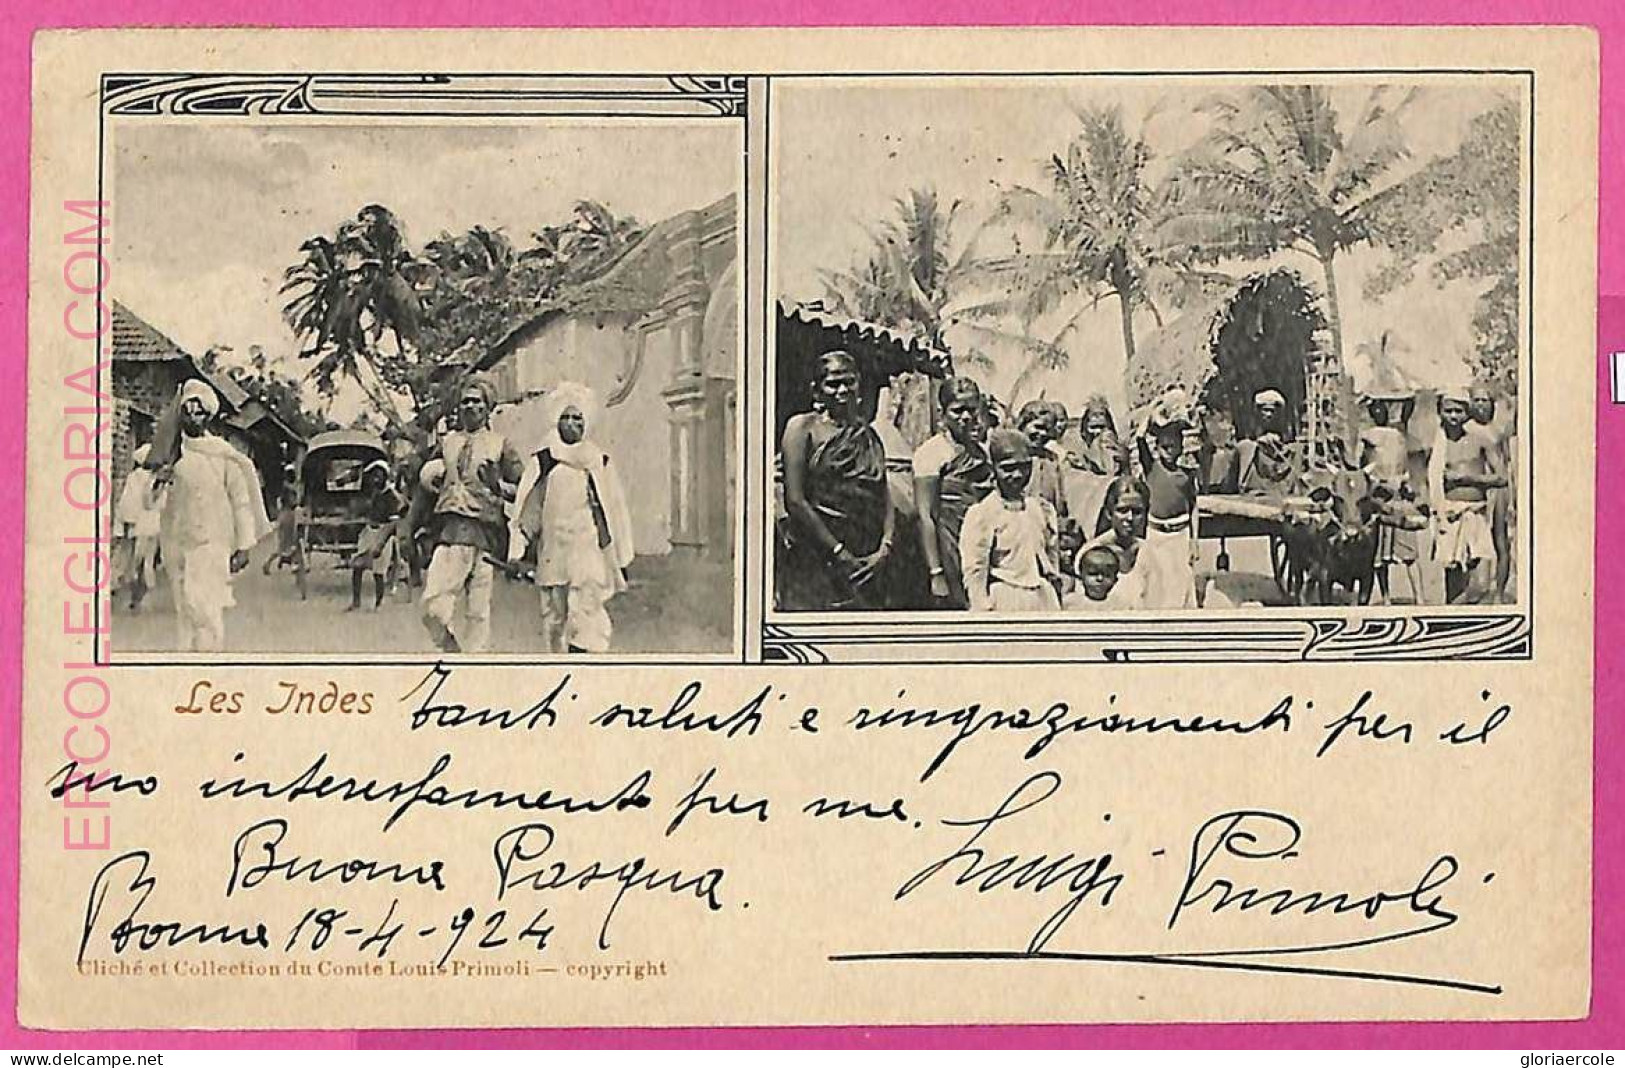 Les Indes Tanti saluti e ringraziamenti per il
suo interessamento per me.
Buona Pasqua.
Luigi Primoli
Roma 18-4-924
Cliché et Collection du Comte Louis Primoli — copyright
ERCOLEGLORIA.COM
www.delcampe.net
gloriaercole